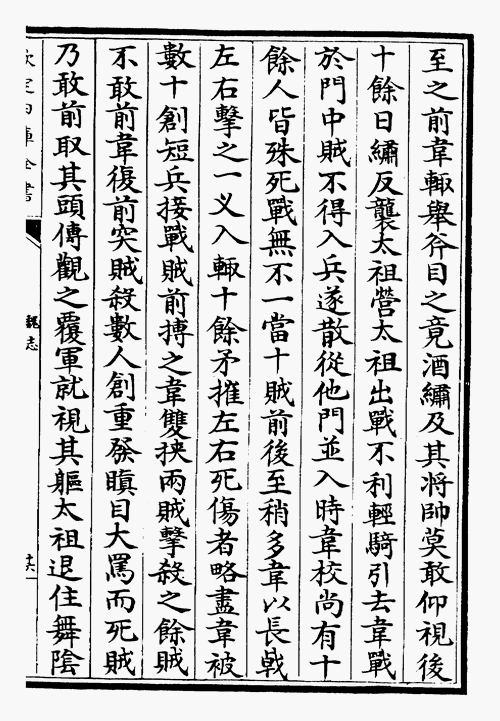 至之前韋輙舉斧目之竟酒繡及其將帥莫敢仰視後
十餘日繡反襲太祖營太祖出戰不利輕騎引去韋戰
於門中賊不得入兵遂散從他門並入時韋校尚有十
餘人皆殊死戰無不一當十賊前後至稍多韋以長戟
左右擊之一义入輙十餘矛摧左右死傷者略盡韋被
數十創短兵接戰賊前搏之韋雙挾兩賊擊殺之餘賊
不敢前韋復前突賊殺數人創重發瞋目大罵而死賊
乃敢前取其頭傳觀之覆軍就視其軀太祖退住舞隂
欽定四庫全書
魏志